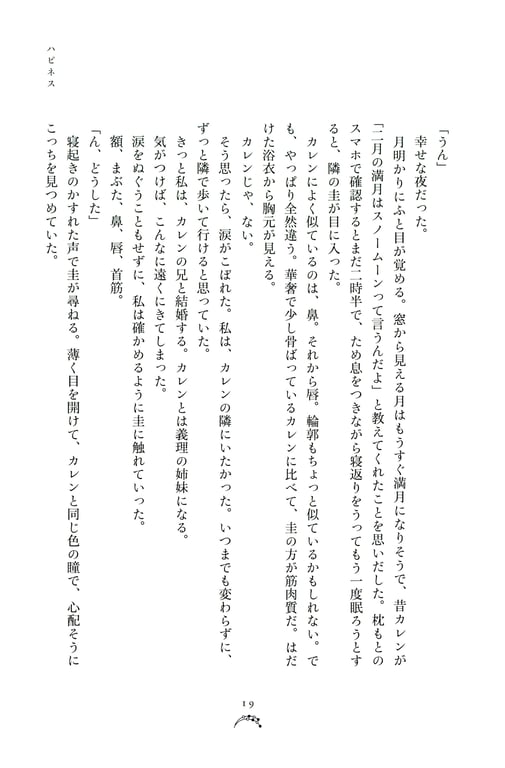 「うん」
　幸せな夜だった。
　月明かりにふと目が覚める。窓から見える月はもうすぐ満月になりそうで、昔カレンが
「二月の満月はスノームーンって言うんだよ」と教えてくれたことを思いだした。枕もとの
スマホで確認するとまだ二時半で、ため息をつきながら寝返りをうってもう一度眠ろうとす
ると、隣の圭が目に入った。
　カレンによく似ているのは、鼻。それから唇。輪郭もちょっと似ているかもしれない。で
も、やっぱり全然違う。華奢で少し骨ばっているカレンに比べて、圭の方が筋肉質だ。はだ
けた浴衣から胸元が見える。
　カレンじゃ、ない。
　そう思ったら、涙がこぼれた。私は、カレンの隣にいたかった。いつまでも変わらずに、
ずっと隣で歩いて行けると思っていた。
　きっと私は、カレンの兄と結婚する。カレンとは義理の姉妹になる。
　気がつけば、こんなに遠くにきてしまった。
　涙をぬぐうこともせずに、私は確かめるように圭に触れていった。
　額、まぶた、鼻、唇、首筋。
「ん、どうした」
　寝起きのかすれた声で圭が尋ねる。薄く目を開けて、カレンと同じ色の瞳で、心配そうに
こっちを見つめていた。
ハピネス
19